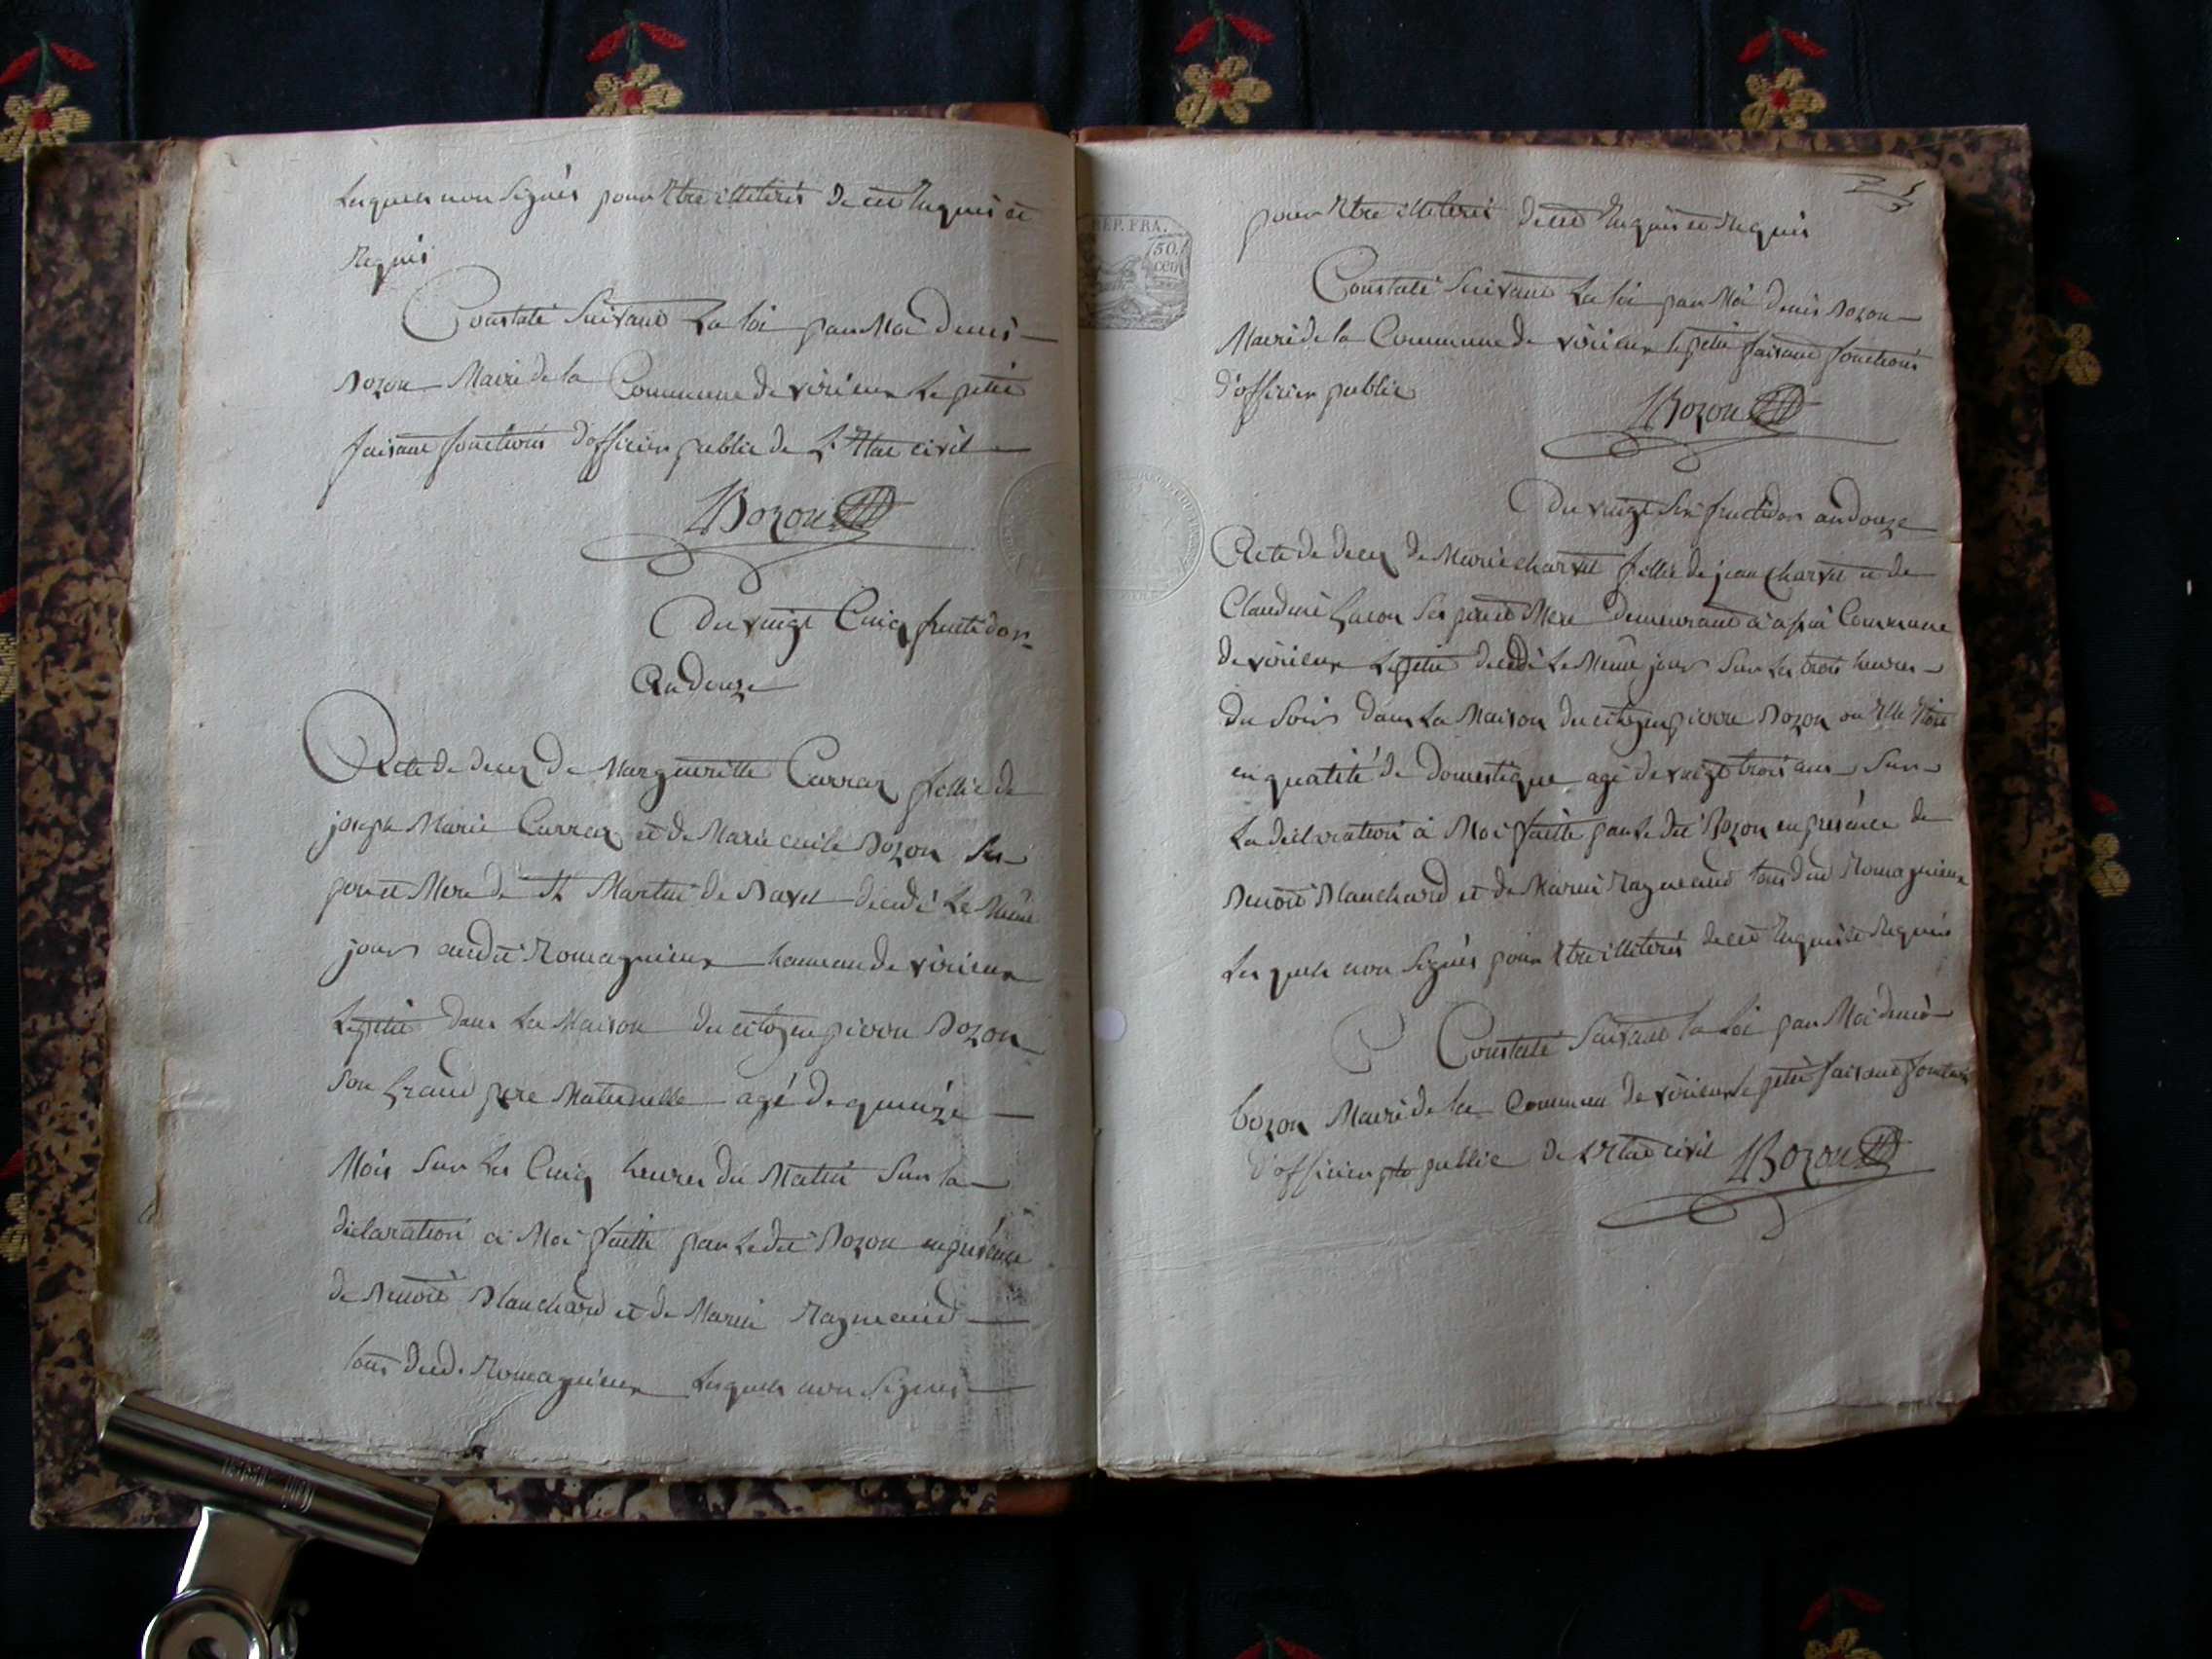 Lesquels non signés pour Etre illiterés de cet Enquis et
Requis
Constaté Suivant La loi par Moi denis
Bozon Maire de la Commune de virieux Le petit
faisant fonctions d'officier public de L'Etat civil
Bozon
Du vingt Cinq fructidor
An douze
Acte de decez de Margueritte Carraz fillie de
joseph Marie Carraz et de Marie cecile Bozon Ses
pere et Mere de St Martin de Bavel décédé Le Même
jours audit Romagnieux hameau de virieux
Lepetit dans La Maison du citoyen pierre Bozon
Son Grand pere Maternelle agé de quinze
Mois Sur Les Cinq heures du Matin Sur la
déclaration à Moi faitte par Ledit Bozon en présence
de Benoit Blanchard et de Marin Raymand
tous dud. Romagnieux Lesquels non Signés
pour Etre illiterés de cet Enquis et Requis
Constaté Suivant La loi par Moi denis Bozon
Maire de la Commune de virieux le petit faisant fonctions
d'officier public
Bozon
Du vingt Six fructidor an douze
Acte de decez de Marie charvet fillie de jean Charvet et de
Claudine Ses pere et Mere demeurant à Commune
de virieux Le petit decedé Le Même jour Sur Les trois heures
du Soir dans La Maison du citoyen pierre Bozon ou Elle Etoit
en qualité de domestique agé de vingt trois ans Sur
La déclaration à Moi faitte par Le dit Bozon en présence de
Benoit Blanchard et de Marin Raymand tous dud Romagnieux
Les quels non Signés pour Etre illiterés de cet Enquis et Requis
Constaté Suivant la Loi par Moi denis
bozon Maire de la Commune de virieux le petit faisant fonctions
d'officier public de L'Etat civil Bozon
REP. FRA.
50.
cen